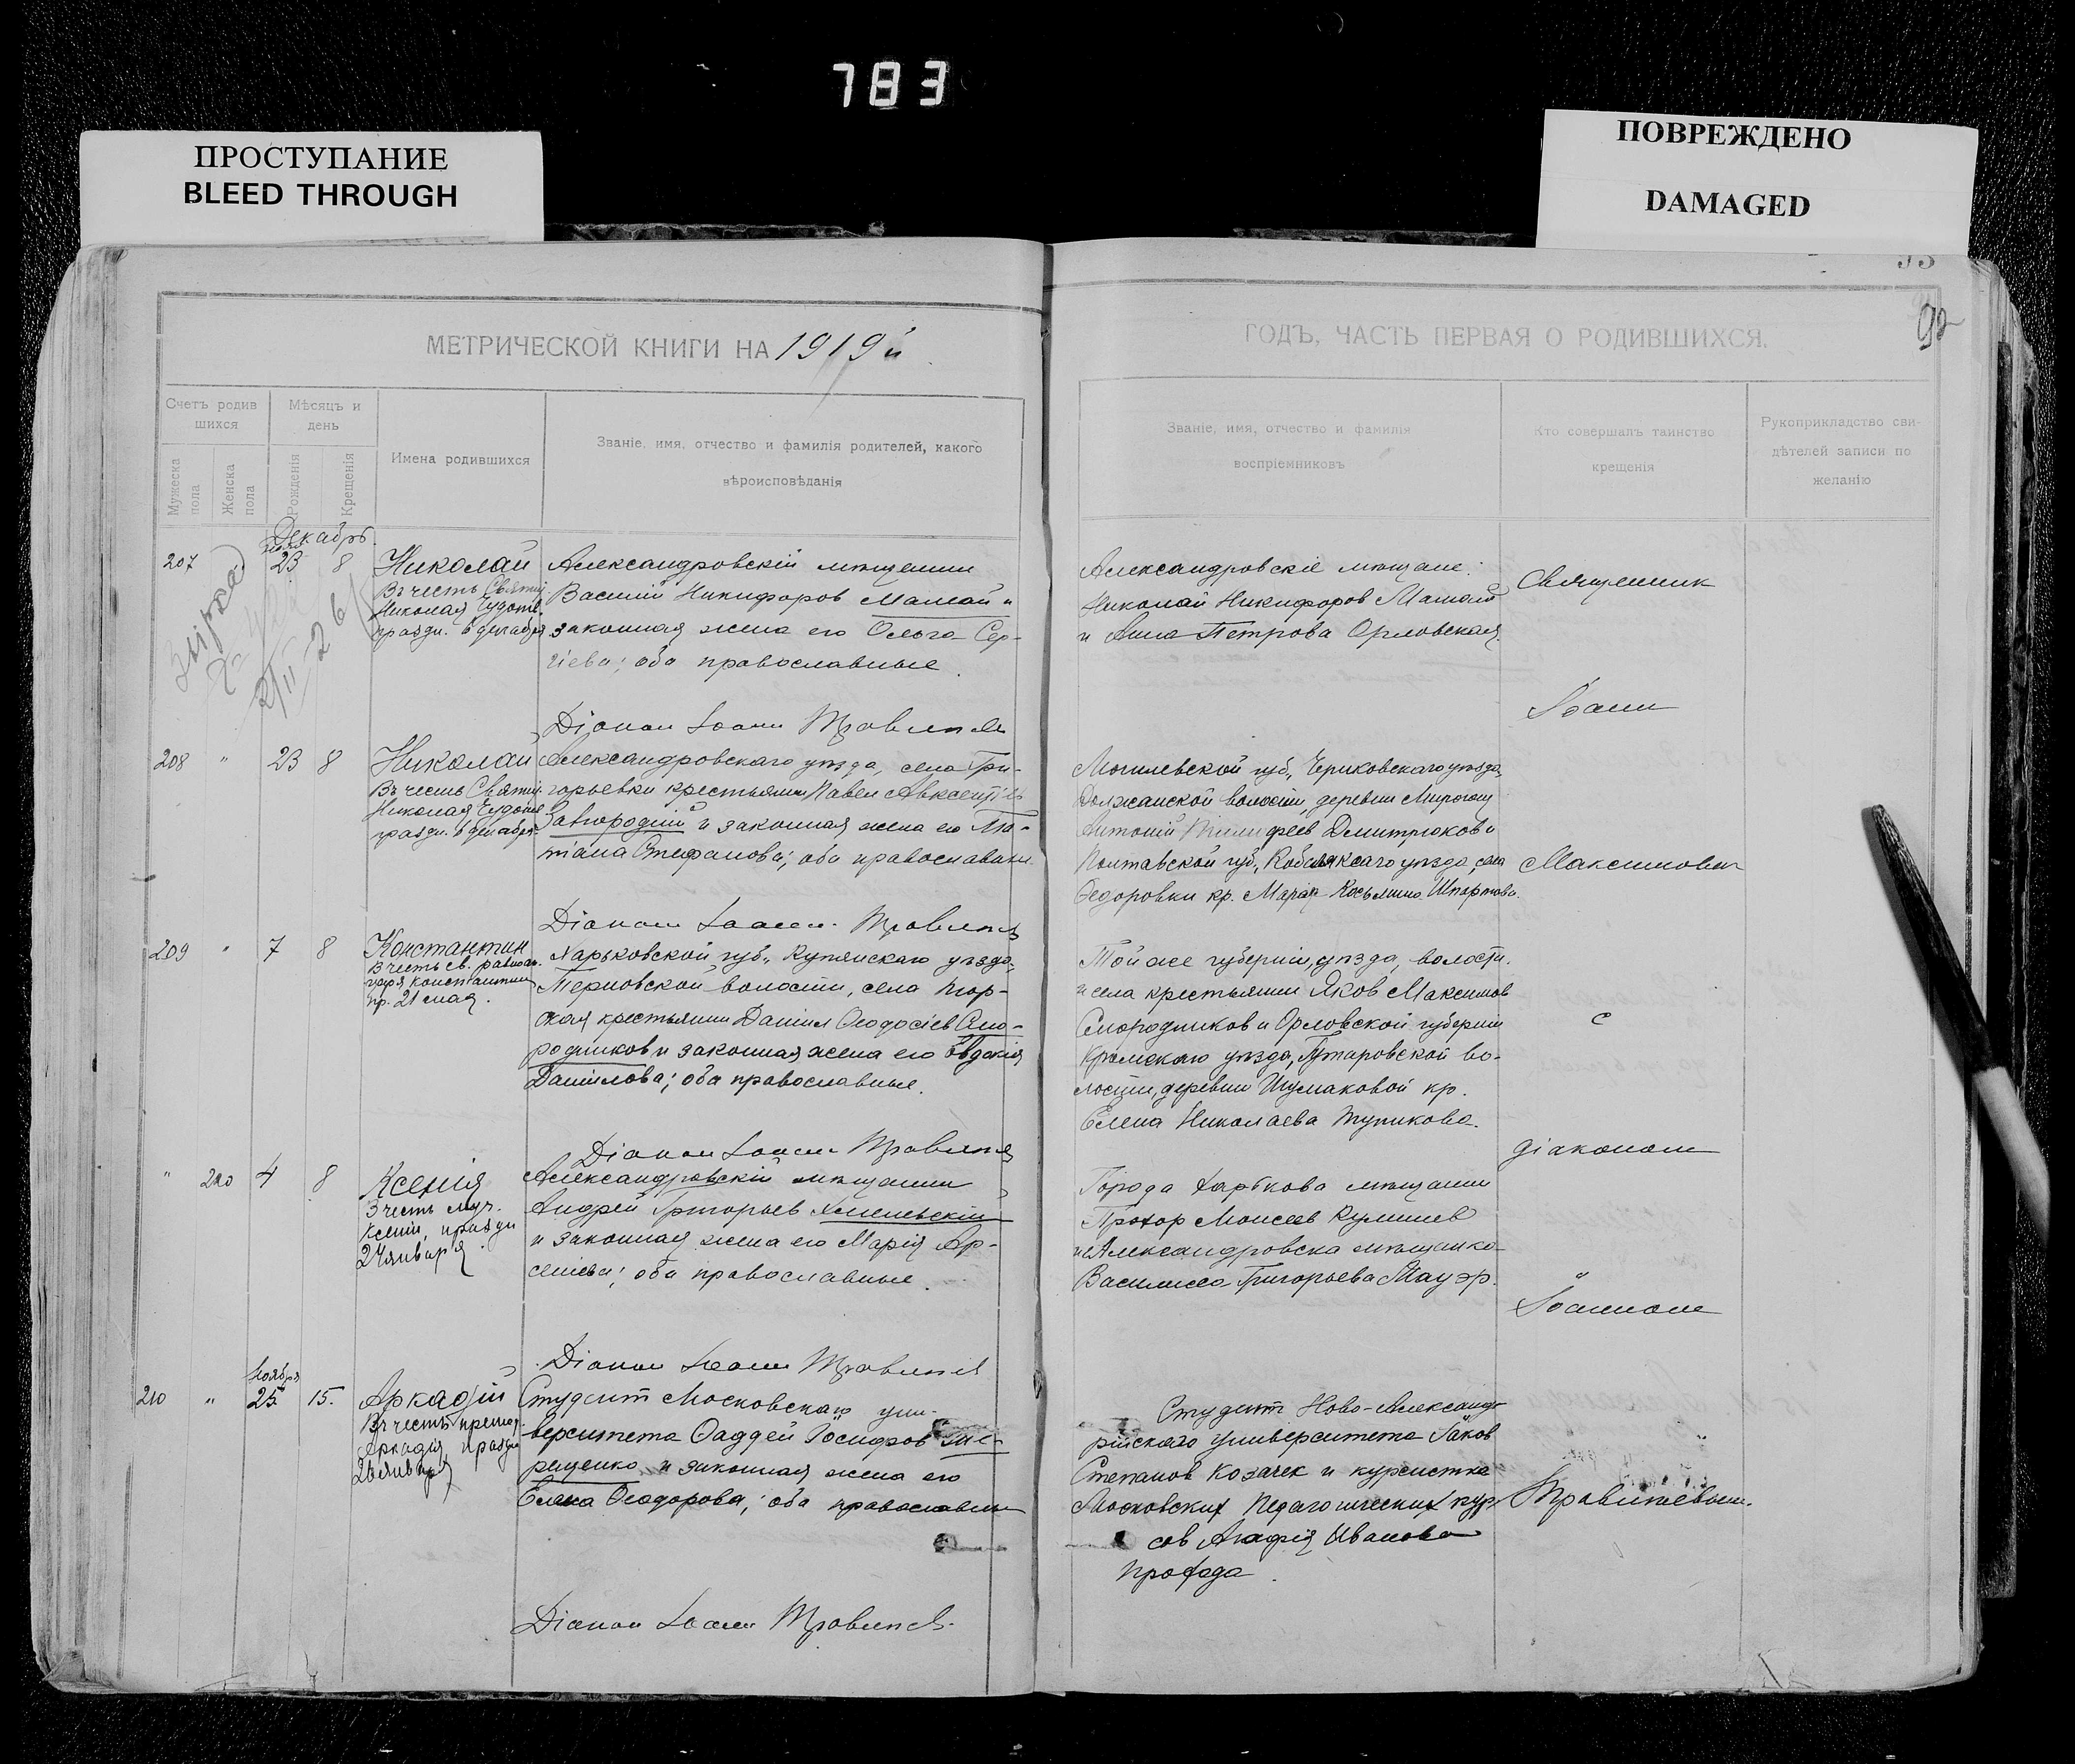 783
ПРОСТУПАНИЕ
BLEED THROUGH
ПОВРЕЖДЕНО
DAMAGED
92
МЕТРИЧЕСКОЙ КНИГИ НА 1919й
ГОДЪ, ЧАСТЬ ПЕРВАЯ О РОДИВШИХСЯ.
Счетъ родив
шихся
Мѣсяцъ и
день
Мужеска
пола
Женска
пола
Рожденія
Крещенія
Имена родившихся
Званіе, имя, отчество и фамилія родителей, какого
вѣроисповѣданія
Званіе, имя, отчество и фамилія
воспріемниковъ
Кто совершалъ таинство
крещенія
Рукоприкладство сви-
дѣтелей записи по
желанію
Декабрь.
207 23 8 Николай
Въ честь Святит.
Николая Чудотв.
праздн. 6 декабря
Александровскій мѣщанин
Василій Никифоров Мамай и
законная жена его Ольга Сер-
гіева; оба православные.
Діакон Іоанн Правитель
Александровскіе мѣщане:
Николай Никифоров Мамай
и Анна Петрова Орловская.
Священник
Іоанн
208 " 23 8 Николай
Въ честь Святит.
Николая Чудотв.
праздн. 6 декабря
Александровскаго уѣзда, села Гри-
горьевки крестьянин Павел Авксентіев
Завгородній и законная жена его Та-
тіана Стефанова; оба православные
Діакон Іоанн
Могилевской губ., Чериковскаго уѣзда,
Должанской волости, деревни
Антоній Тимофеев Демитрюков и
Полтавской губ., Кобелякскаго уѣзда, села
Федоровки кр. Марія Косьмина
Максимович
209 " 7 8 Константин
В честь св. равноап.
царя Константина
пр. 21 мая.
Харьковской губ., Купянскаго уѣзда,
волости, села
крестьянин Даніил Феодосіев Смо-
родников и законная жена его Евдокія
Даніилова; оба православные.
Діакон Іоанн
Той же губерніи, уѣзда, волости
и села крестьянин Яков Максимов
Смородников и Орловской губерніи
Кромскаго уѣзда, волости, деревни Шумаковой кр.
Елена Николаева Тупикова.
с
діаконом
" 4 8 Ксенія
В честь муч.
Ксеніи, праздн
24 января.
Александровскій мѣщанин
Андрей Григорьев Хмелевскій
и законная жена его Марія Ар-
сеніева; оба православные.
Діакон Іоанн
Города Харькова мѣщанин
Прохор Моисеев
и Александровска мѣщанка
Василисса Григорьева Мауэр.
Іоанном
Ноября
210 " 25 15. Аркадій
Въ честь препод.
Аркадія, праздн
26 января
Студент Московскаго уни-
верситета Фаддей
и законная жена его
Елена Феодорова; оба православные
Діакон Іоанн
Студент Ново-Александ-
рійскаго университета Іаков
Степанов Козачек и курсистка
Московских Педагогических кур-
сов Агафія Иванова
Прохода.